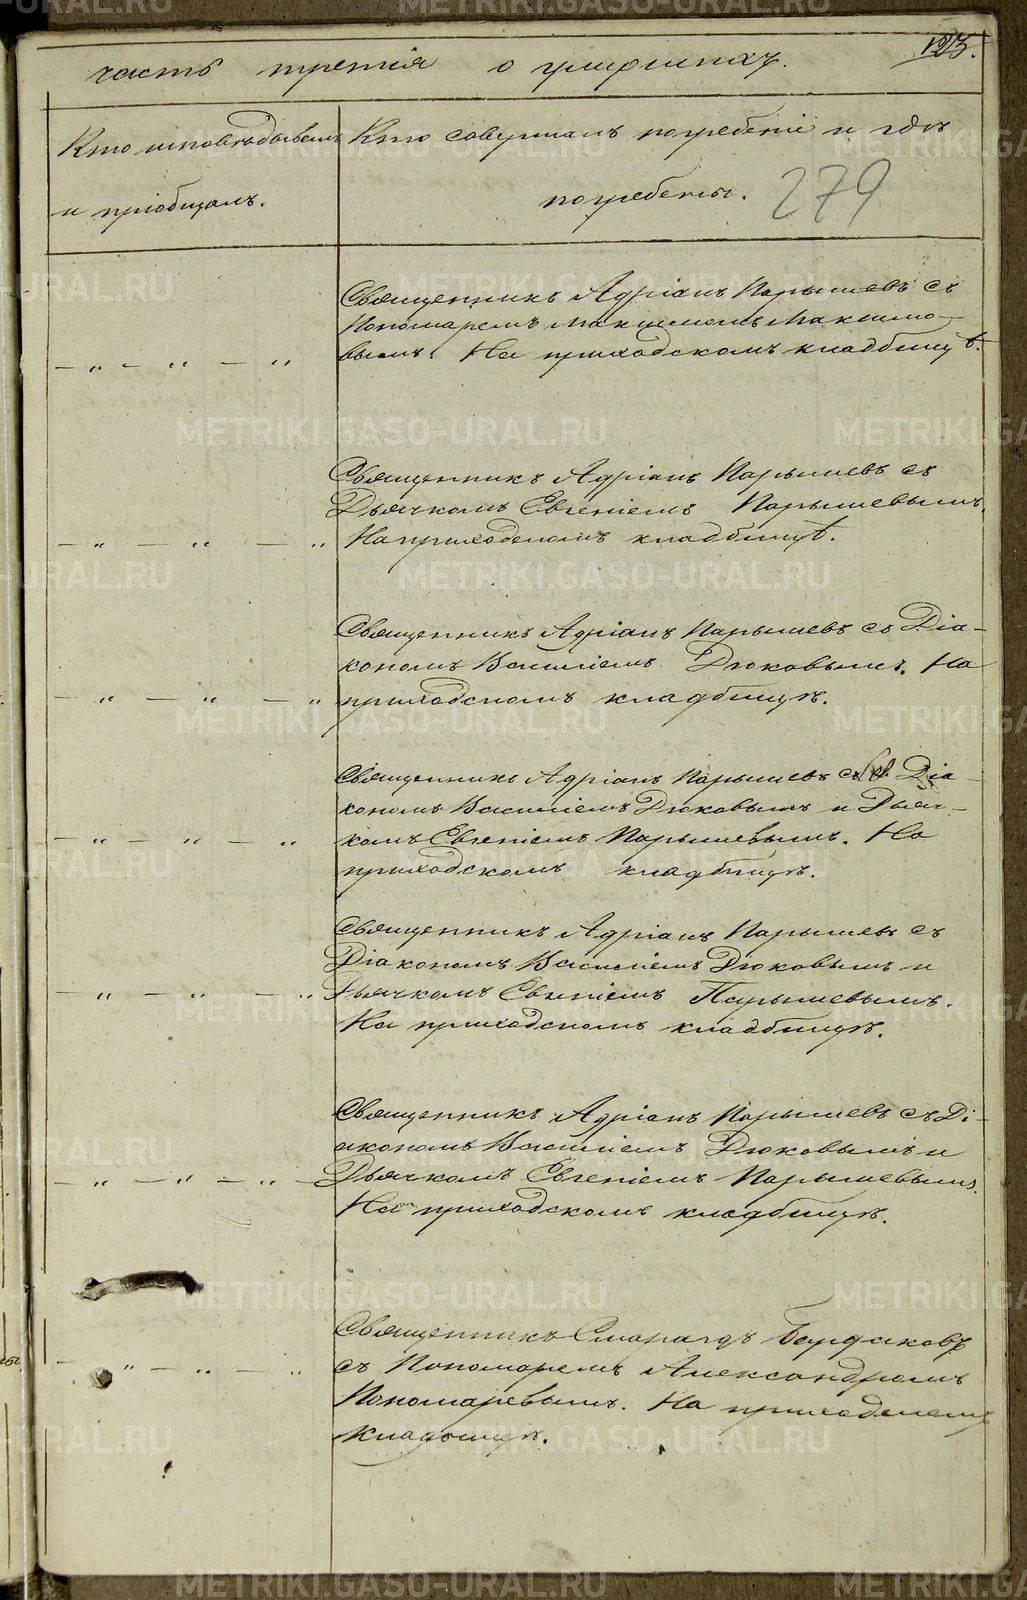 123.
часть третія о умершихъ.
Кто исповѣдывалъ
и пріобщалъ.
Кто совершалъ погребеніе и гдѣ
погребены.
279
Священникъ Адріанъ Парышевъ съ
Пономаремъ Максимомъ Максимо-
вымъ. На приходскомъ кладбищѣ.
– „ – „ – „
Священникъ Адріанъ Парышевъ съ
Дьячкомъ Евгеніемъ Парышевымъ.
– „ – „ – „ На приходскомъ кладбищѣ.
Священникъ Адріанъ Парышевъ съ Діа-
кономъ Василіемъ Дюковымъ. На
– „ – „ – „ приходскомъ кладбищѣ.
Священникъ Адріанъ Парышевъ съ Діа-
кономъ Василіемъ Дюковымъ и Дьяч-
– „ – „ – „ комъ Евгеніемъ Парышевымъ. На
приходскомъ кладбищѣ.
Священникъ Адріанъ Парышевъ съ
Діакономъ Василіемъ Дюковымъ и
– „ – „ – „ Дьячкомъ Евгеніемъ Парышевымъ.
На приходскомъ кладбищѣ.
Священникъ Адріанъ Парышевъ съ Ді-
акономъ Василіемъ Дюковымъ и
– „ – „ – „ – Дьячкомъ Евгеніемъ Парышевымъ.
На приходскомъ кладбищѣ.
Священникъ Смарагдъ Бардаковъ
– „ – „ – „ съ Пономаремъ Александромъ
Пономаревымъ. На приходскомъ
кладбищѣ.
METRIKI.GASO-URAL.RU